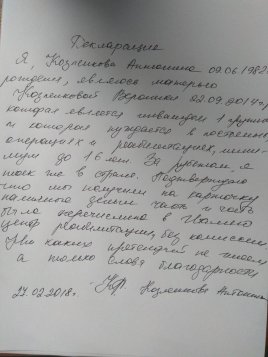 Декларация
Я, Козленкова Антонина 09.06.1982
рождения, являюсь матерью
Козленковой Вероники 02.09.2014г,
которая является инвалидом 1 группы
и которая нуждается в постоянных
операциях и реабилитациях, мини-
мум до 16 лет. За рубежом и
так же в стране. Подтверждаю
что мы получили на карточку
наличного деньги часть и часть
была перечислена в
центр реабилитации, без комиссии
Ни каких претензий не имеем
а только слова благодарности
27.02.2018г. Козленкова Антонина